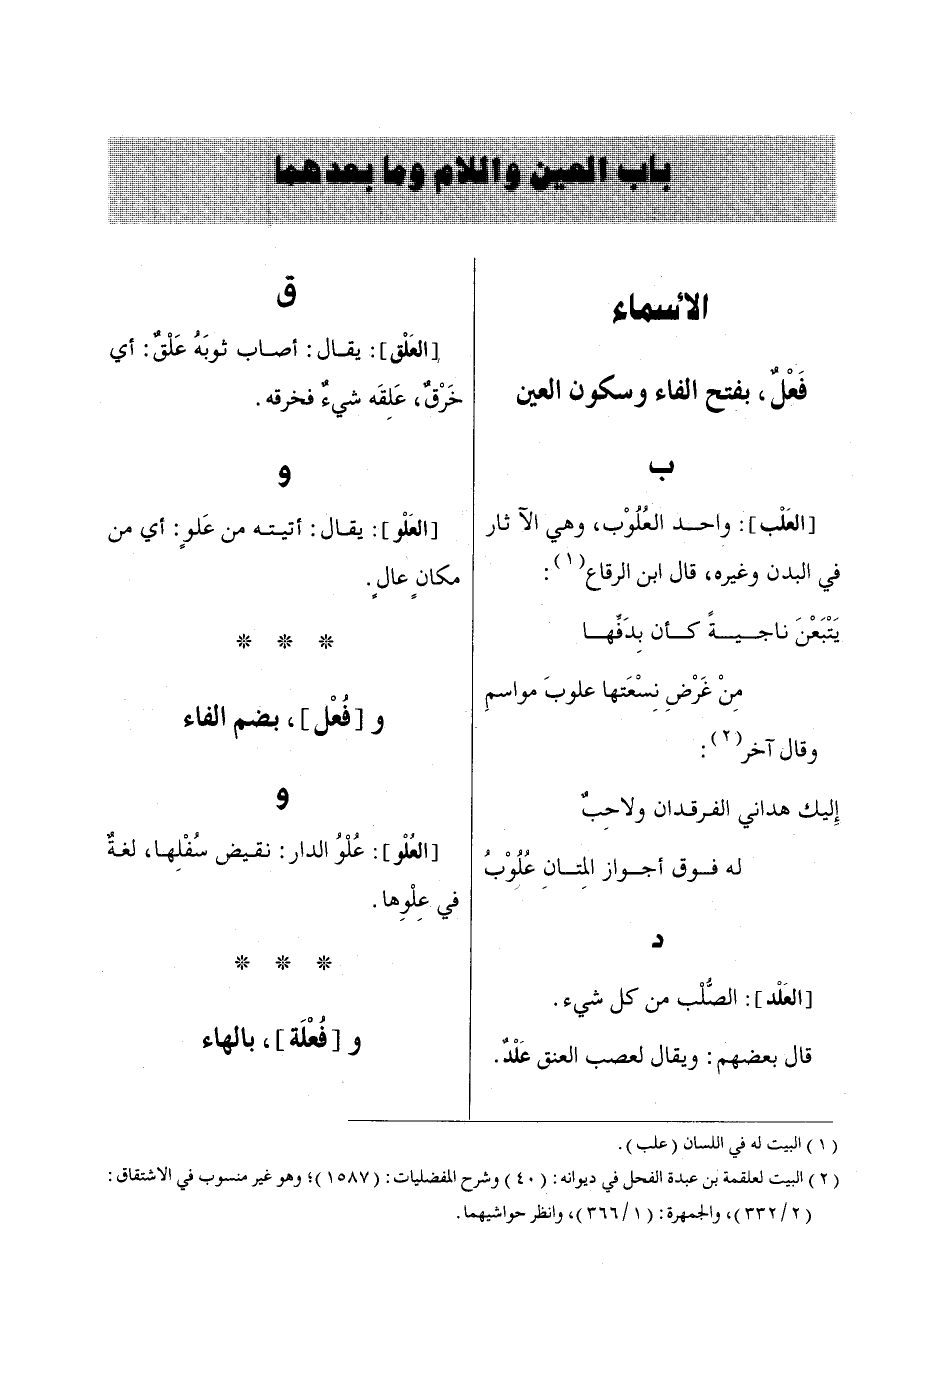 باب العين واللام وما بعدهما
الأسماء
فَعْلٌ، بفتح الفاء وسكون العين
ب
[العَلْب]: واحد العُلُوْب، وهي الآثار
في البدن وغيره، قال ابن الرقاع(١):
يَتْبَعْنَ ناجيةً كأن بِدَفِّها
مِنْ غَرْضِ نِسْعَتها علوبَ مواسمِ
وقال آخر(٢):
إليك هداني الفرقدان ولاحِبٌ
له فوق أجواز المِتانِ عُلُوْبُ
د
[العَلْد]: الصُّلْب من كل شيء.
قال بعضهم: ويقال لعصب العنق عَلْدٌ.
ق
[العَلْق]: يقال: أصاب ثوبَهُ عَلْقٌ: أي
خَرْقٌ، عَلِقَه شيءٌ فخرقه.
و
[العَلْو]: يقال: أتيته من عَلوٍ: أي من
مكانٍ عالٍ.
* * *
و [فُعْل]، بضم الفاء
و
[العُلْو]: عُلْوُ الدار: نقيض سُفْلِها، لغةٌ
في عِلْوِها.
* * *
و [فُعْلَة]، بالهاء
(١) البيت له في اللسان (علب).
(٢) البيت لعلقمة بن عبدة الفحل في ديوانه: (٤٠) وشرح المفضليات: (١٥٨٧)؛ وهو غير منسوب في الاشتقاق:
(٣٣٢/٢)، والجمهرة: (٣٦٦/١)، وانظر حواشيهما.